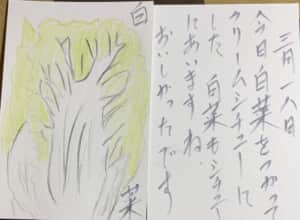 白
菜
三月一八日
今日白菜をつかって
クリームシチューに
した 白菜もシチュー
にあいますね、
おいしかったです